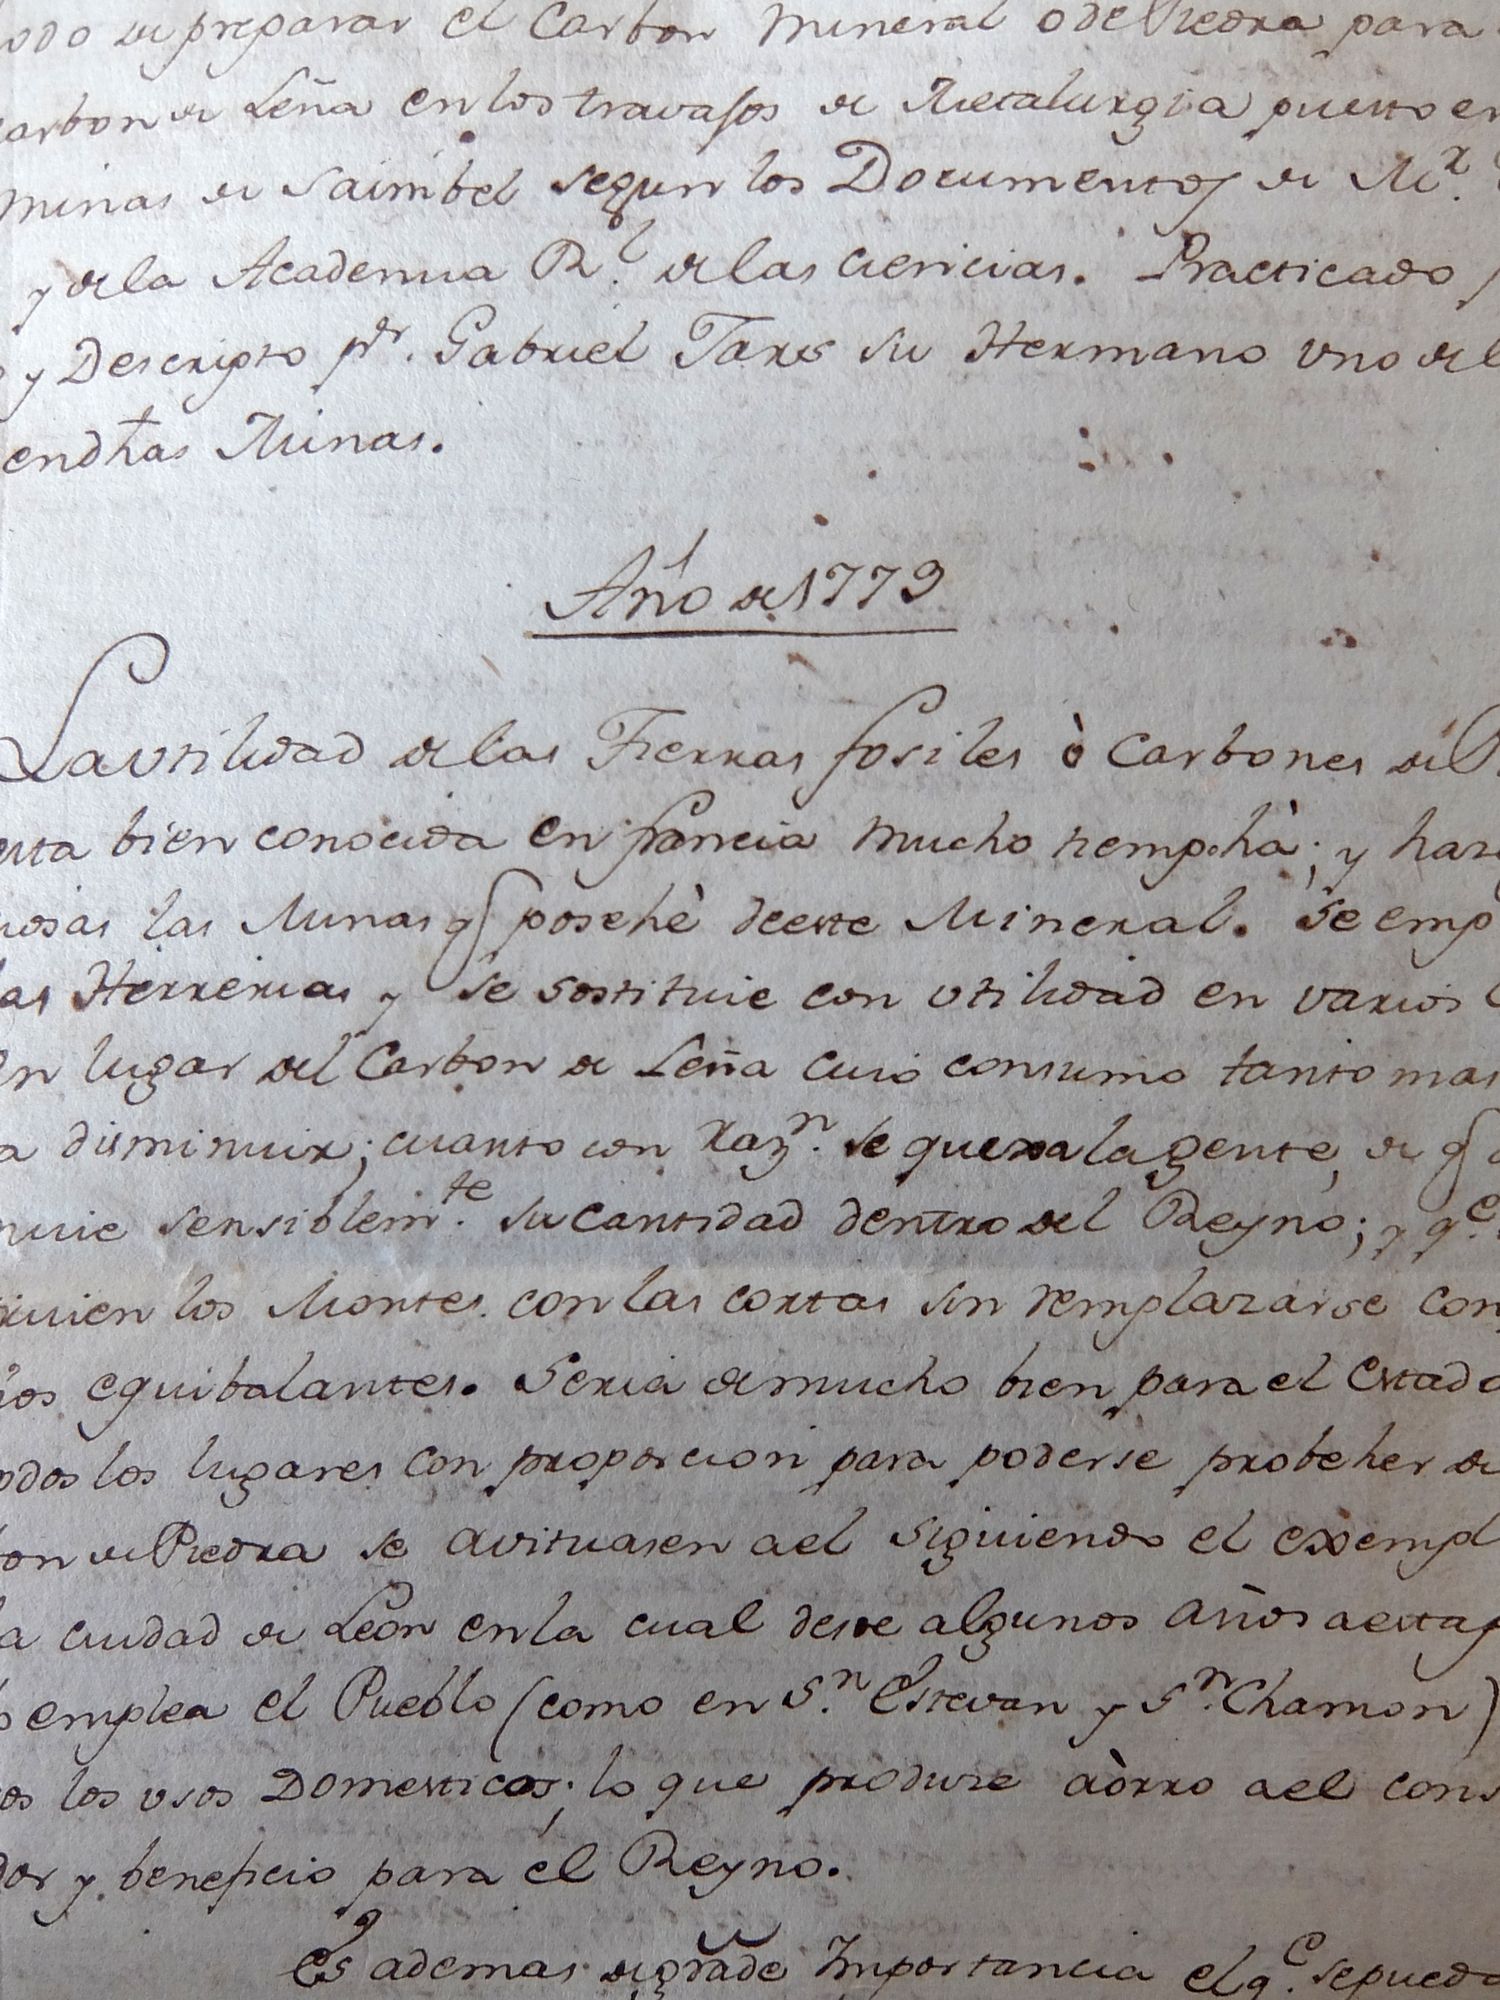 odo de preparar el Carbon Mineral o de Piedra para
Carbon de Leña en los travajos de Metalurgia puesto en
Minas de Sainbel segun los Documentos de Mr.
y de la Academia Rl. de las ciencias. Practicado
y Descripto pr. Gabriel Jars su Hermano uno de l
en dhas Minas.
Año de 1779
La utilidad de las Tierras fosiles ò Carbones de P
esta bien conocida en francia mucho tiempo hà; y
las Minas q posehè de este Mineral. Se emp
las Herrerias y se sostituie con utilidad en varios
en lugar del Carbon de Leña cuio consumo tanto mas
a disminuir; cuanto con razn. se quexa la gente, de q
nuie sensiblemte. su cantidad dentro del Reyno; y qe.
los Montes con las cortas sin remplazarse con
ios equibalantes. Seria de mucho bien para el Estado
odos los lugares con proporcion para poderse probeher de
bon de Piedra se avituasen a el siguiendo el exempl
la ciudad de Leon en la cual desde algunos años a esta p
o emplea el Pueblo (como en Sn. Estevan y Sn. Chamon)
os los usos Domesticos; lo que produze aòrro a el cons
dor y beneficio para el Reyno.
Es ademas de grãde Importancia el qe. se pueda